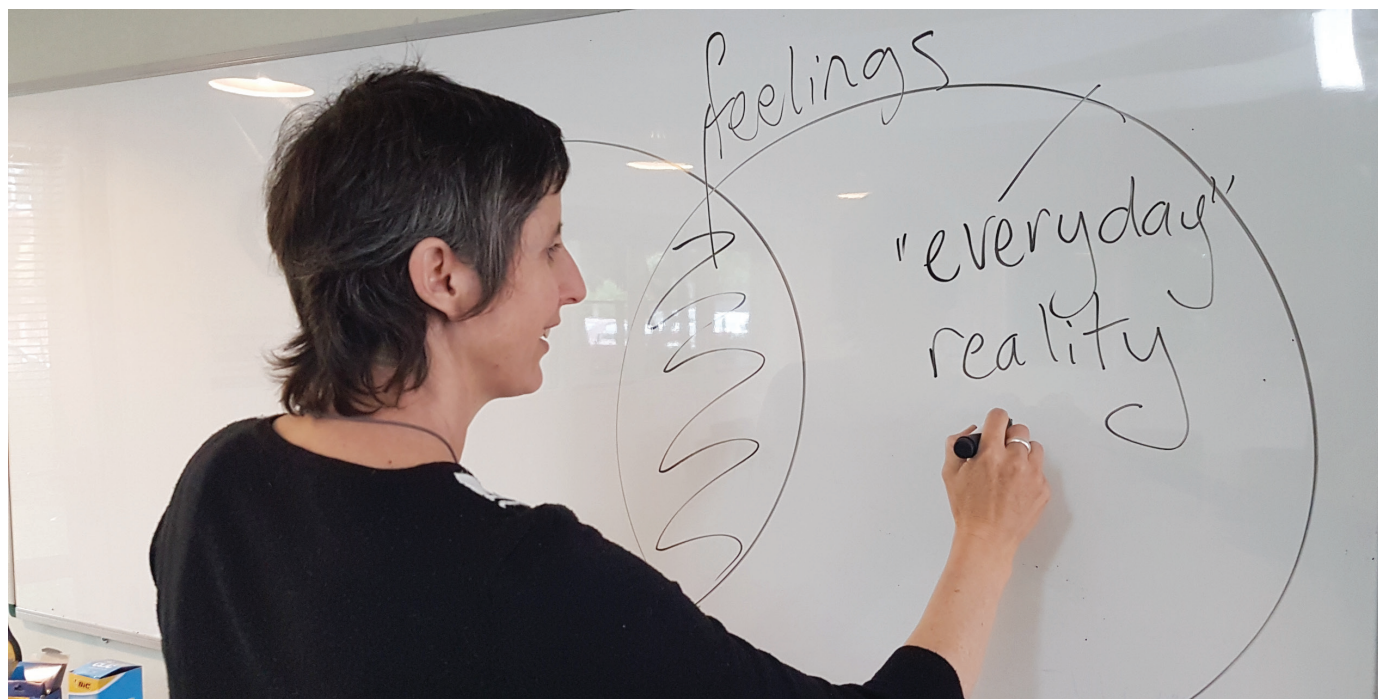 feelings
"everyday"
reality
BIC